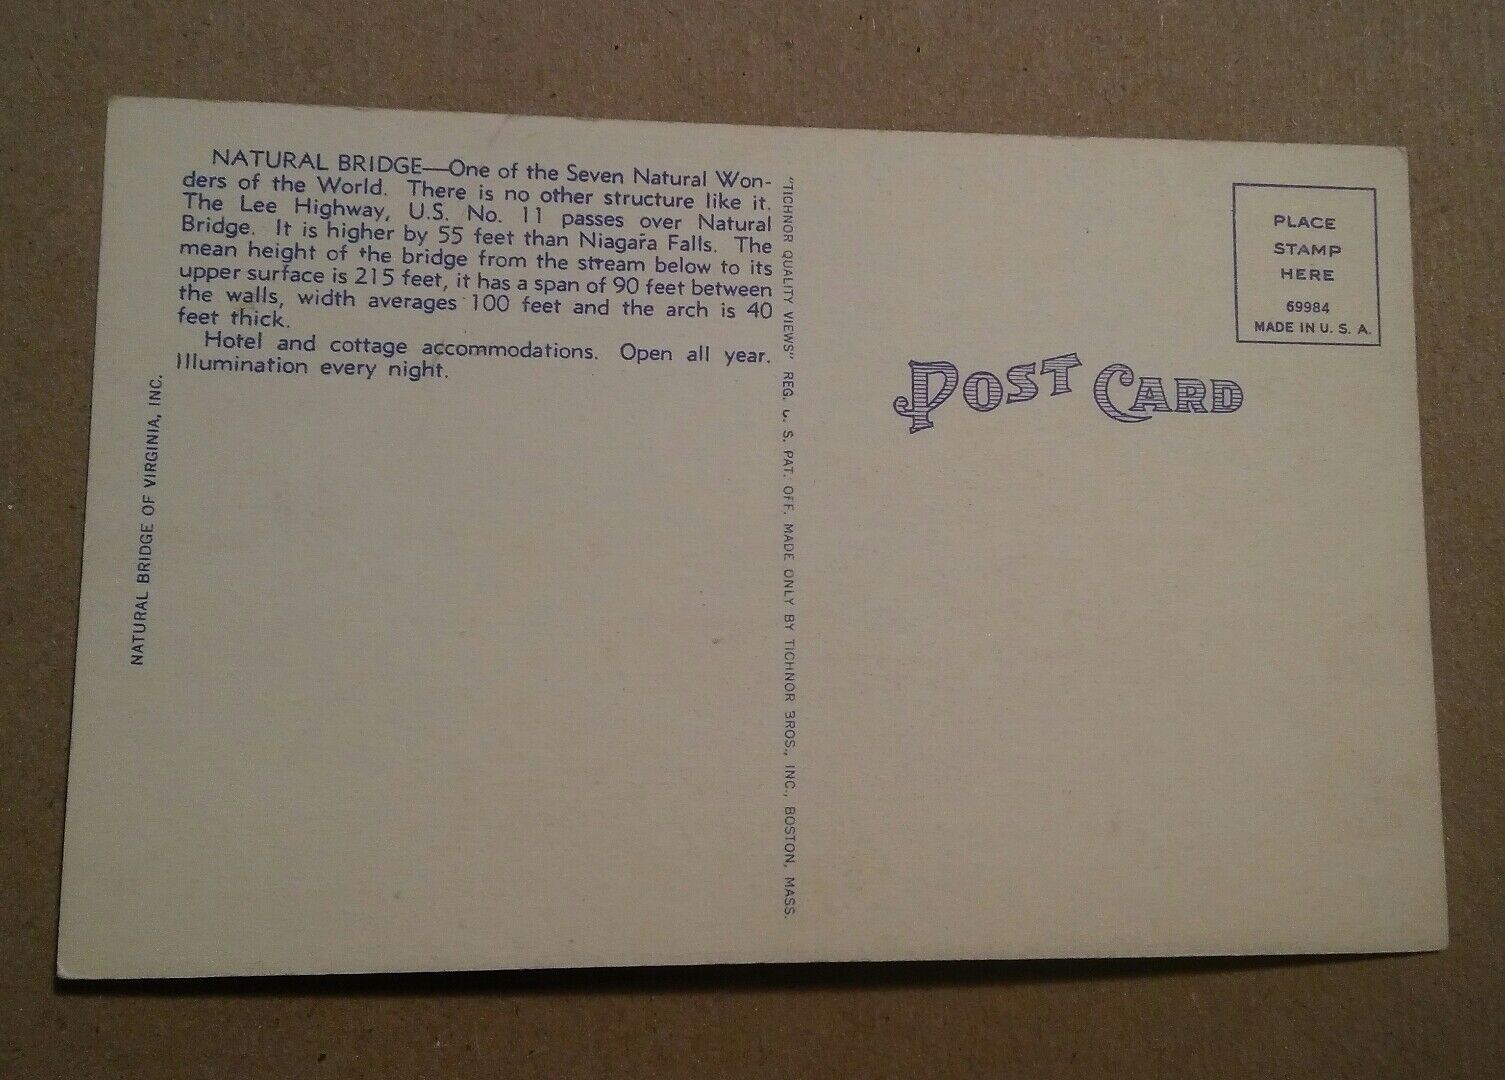 NATURAL BRIDGE—One of the Seven Natural Won-
ders of the World. There is no other structure like it.
The Lee Highway, U.S. No. 11 passes over Natural
Bridge. It is higher by 55 feet than Niagara Falls. The
mean height of the bridge from the stream below to its
upper surface is 215 feet, it has a span of 90 feet between
the walls, width averages 100 feet and the arch is 40
feet thick.
Hotel and cottage accommodations. Open all year.
Illumination every night.
NATURAL BRIDGE OF VIRGINIA, INC.
"TICHNOR QUALITY VIEWS" REG. U. S. PAT. OFF. MADE ONLY BY TICHNOR BROS., INC., BOSTON, MASS.
PLACE
STAMP
HERE
69984
MADE IN U. S. A.
POST CARD